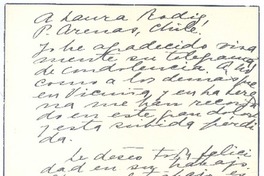 A Laura Rodig
P. Arenas, Chile.
Yo he agradecido viva
mente su telegrama
de condolencia. A Ud.
como a los demás que
en Vicuña y en ha here
na me han recorda
do en este gran dolor
y esta subida pérdi
da.
Le deseo toda felici
dad en su trabajo